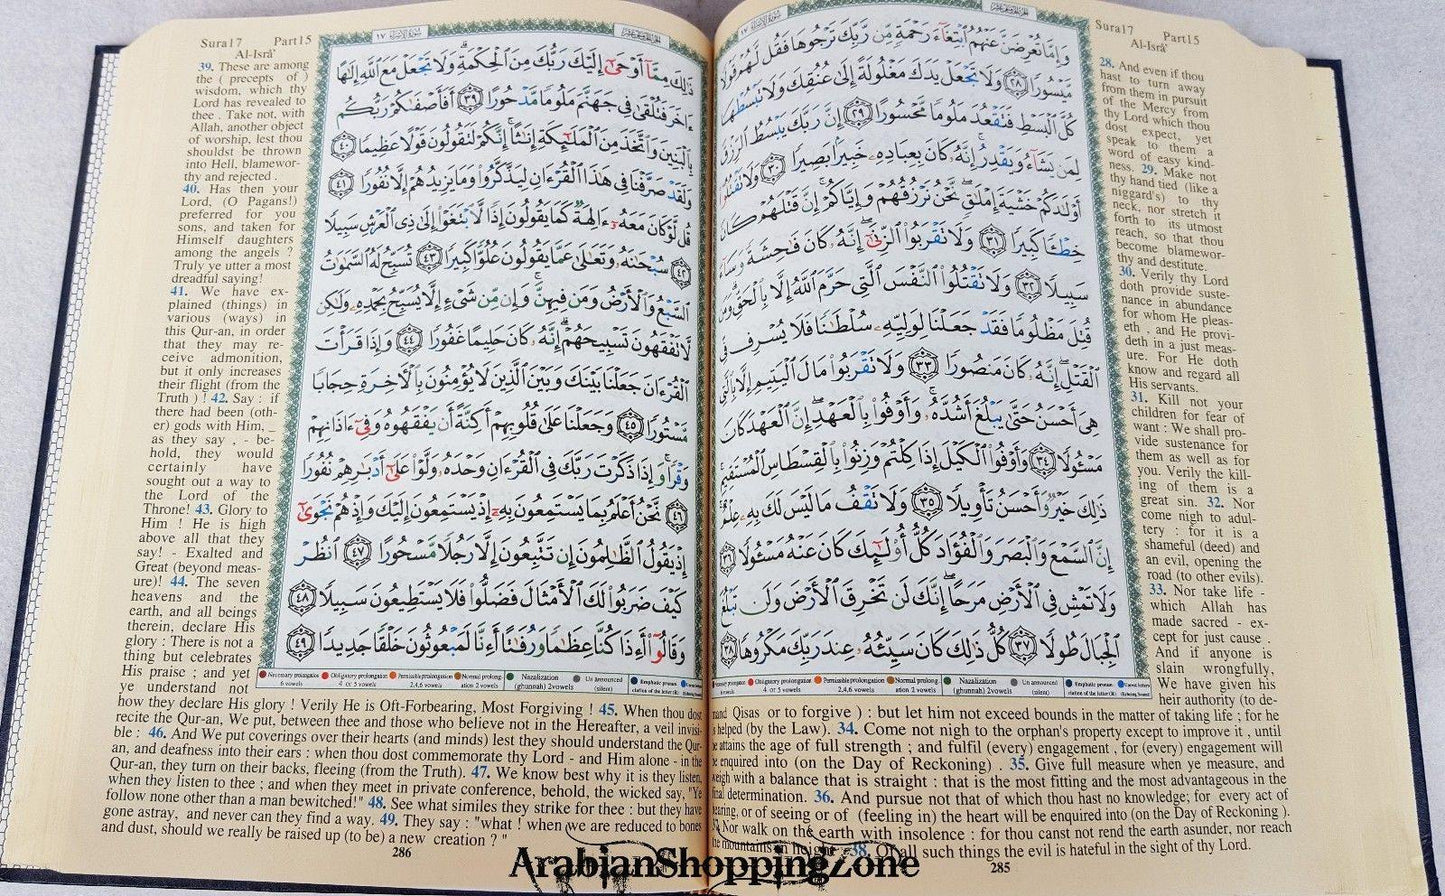 Sura17 Part15
Al-Isrâ'
وَإِمَّا تُعْرِضَنَّ عَنْهُمُ ٱبْتِغَآءَ رَحْمَةٍ مِّن رَّبِّكَ تَرْجُوهَا فَقُل لَّهُمْ قَوْلًا
مَّيْسُورًا ٢٨ وَلَا تَجْعَلْ يَدَكَ مَغْلُولَةً إِلَىٰ عُنُقِكَ وَلَا تَبْسُطْهَا
كُلَّ ٱلْبَسْطِ فَتَقْعُدَ مَلُومًا مَّحْسُورًا ٢٩ إِنَّ رَبَّكَ يَبْسُطُ ٱلرِّزْقَ
لِمَن يَشَآءُ وَيَقْدِرُ إِنَّهُۥ كَانَ بِعِبَادِهِۦ خَبِيرًۢا بَصِيرًا ٣٠ وَلَا تَقْتُلُوٓا۟
أَوْلَٰدَكُمْ خَشْيَةَ إِمْلَٰقٍ نَّحْنُ نَرْزُقُهُمْ وَإِيَّاكُمْ إِنَّ قَتْلَهُمْ كَانَ
خِطْـًٔا كَبِيرًا ٣١ وَلَا تَقْرَبُوا۟ ٱلزِّنَىٰٓ إِنَّهُۥ كَانَ فَٰحِشَةً وَسَآءَ
سَبِيلًا ٣٢ وَلَا تَقْتُلُوا۟ ٱلنَّفْسَ ٱلَّتِى حَرَّمَ ٱللَّهُ إِلَّا بِٱلْحَقِّ وَمَن
قُتِلَ مَظْلُومًا فَقَدْ جَعَلْنَا لِوَلِيِّهِۦ سُلْطَٰنًا فَلَا يُسْرِف فِّى
ٱلْقَتْلِ إِنَّهُۥ كَانَ مَنصُورًا ٣٣ وَلَا تَقْرَبُوا۟ مَالَ ٱلْيَتِيمِ إِلَّا بِٱلَّتِى
هِىَ أَحْسَنُ حَتَّىٰ يَبْلُغَ أَشُدَّهُۥ وَأَوْفُوا۟ بِٱلْعَهْدِ إِنَّ ٱلْعَهْدَ كَانَ
مَسْـُٔولًا ٣٤ وَأَوْفُوا۟ ٱلْكَيْلَ إِذَا كِلْتُمْ وَزِنُوا۟ بِٱلْقِسْطَاسِ ٱلْمُسْتَقِيمِ
ذَٰلِكَ خَيْرٌ وَأَحْسَنُ تَأْوِيلًا ٣٥ وَلَا تَقْفُ مَا لَيْسَ لَكَ بِهِۦ عِلْمٌ
إِنَّ ٱلسَّمْعَ وَٱلْبَصَرَ وَٱلْفُؤَادَ كُلُّ أُو۟لَٰٓئِكَ كَانَ عَنْهُ مَسْـُٔولًا ٣٦
وَلَا تَمْشِ فِى ٱلْأَرْضِ مَرَحًا إِنَّكَ لَن تَخْرِقَ ٱلْأَرْضَ وَلَن تَبْلُغَ
ٱلْجِبَالَ طُولًا ٣٧ كُلُّ ذَٰلِكَ كَانَ سَيِّئُهُۥ عِندَ رَبِّكَ مَكْرُوهًا ٣٨
28. And even if thou
hast to turn away
from them in pursuit
of the Mercy from
thy Lord which thou
dost expect, yet
speak to them a
word of easy kind-
ness. 29. Make not
thy hand tied (like a
niggard's) to thy
neck, nor stretch it
forth to its utmost
reach, so that thou
become blamewor-
thy and destitute.
30. Verily thy Lord
doth provide suste-
nance in abundance
for whom He pleas-
eth , and He provi-
deth in a just meas-
ure. For He doth
know and regard all
His servants.
31. Kill not your
children for fear of
want : We shall pro-
vide sustenance for
them as well as for
you. Verily the kill-
ing of them is a
great sin. 32. Nor
come nigh to adul-
tery : for it is a
shameful (deed) and
an evil, opening the
road (to other evils).
33. Nor take life -
which Allah has
made sacred - ex-
cept for just cause .
And if anyone is
slain wrongfully,
We have given his
heir authority (to de-
mand Qisas or to forgive ) : but let him not exceed bounds in the matter of taking life ; for he
is helped (by the Law). 34. Come not nigh to the orphan's property except to improve it , until
he attains the age of full strength ; and fulfil (every) engagement , for (every) engagement will
be enquired into (on the Day of Reckoning) . 35. Give full measure when ye measure, and
weigh with a balance that is straight : that is the most fitting and the most advantageous in the
final determination. 36. And pursue not that of which thou hast no knowledge; for every act of
hearing, or of seeing or of (feeling in) the heart will be enquired into (on the Day of Reckoning ).
37. Nor walk on the earth with insolence : for thou canst not rend the earth asunder, nor reach
the mountains in height . 38. Of all such things the evil is hateful in the sight of thy Lord.
285
Sura17 Part15
Al-Isrâ'
ذَٰلِكَ مِمَّآ أَوْحَىٰٓ إِلَيْكَ رَبُّكَ مِنَ ٱلْحِكْمَةِ وَلَا تَجْعَلْ مَعَ ٱللَّهِ إِلَٰهًا
ءَاخَرَ فَتُلْقَىٰ فِى جَهَنَّمَ مَلُومًا مَّدْحُورًا ٣٩ أَفَأَصْفَىٰكُمْ رَبُّكُم
بِٱلْبَنِينَ وَٱتَّخَذَ مِنَ ٱلْمَلَٰٓئِكَةِ إِنَٰثًا إِنَّكُمْ لَتَقُولُونَ قَوْلًا عَظِيمًا ٤٠
وَلَقَدْ صَرَّفْنَا فِى هَٰذَا ٱلْقُرْءَانِ لِيَذَّكَّرُوا۟ وَمَا يَزِيدُهُمْ إِلَّا نُفُورًا ٤١
قُل لَّوْ كَانَ مَعَهُۥٓ ءَالِهَةٌ كَمَا يَقُولُونَ إِذًا لَّٱبْتَغَوْا۟ إِلَىٰ ذِى ٱلْعَرْشِ سَبِيلًا
٤٢ سُبْحَٰنَهُۥ وَتَعَٰلَىٰ عَمَّا يَقُولُونَ عُلُوًّا كَبِيرًا ٤٣ تُسَبِّحُ لَهُ ٱلسَّمَٰوَٰتُ
ٱلسَّبْعُ وَٱلْأَرْضُ وَمَن فِيهِنَّ وَإِن مِّن شَىْءٍ إِلَّا يُسَبِّحُ بِحَمْدِهِۦ وَلَٰكِن
لَّا تَفْقَهُونَ تَسْبِيحَهُمْ إِنَّهُۥ كَانَ حَلِيمًا غَفُورًا ٤٤ وَإِذَا قَرَأْتَ
ٱلْقُرْءَانَ جَعَلْنَا بَيْنَكَ وَبَيْنَ ٱلَّذِينَ لَا يُؤْمِنُونَ بِٱلْءَاخِرَةِ حِجَابًا
مَّسْتُورًا ٤٥ وَجَعَلْنَا عَلَىٰ قُلُوبِهِمْ أَكِنَّةً أَن يَفْقَهُوهُ وَفِىٓ ءَاذَانِهِمْ
وَقْرًا وَإِذَا ذَكَرْتَ رَبَّكَ فِى ٱلْقُرْءَانِ وَحْدَهُۥ وَلَّوْا۟ عَلَىٰٓ أَدْبَٰرِهِمْ نُفُورًا
٤٦ نَّحْنُ أَعْلَمُ بِمَا يَسْتَمِعُونَ بِهِۦٓ إِذْ يَسْتَمِعُونَ إِلَيْكَ وَإِذْ هُمْ نَجْوَىٰٓ
إِذْ يَقُولُ ٱلظَّٰلِمُونَ إِن تَتَّبِعُونَ إِلَّا رَجُلًا مَّسْحُورًا ٤٧ ٱنظُرْ
كَيْفَ ضَرَبُوا۟ لَكَ ٱلْأَمْثَالَ فَضَلُّوا۟ فَلَا يَسْتَطِيعُونَ سَبِيلًا ٤٨
وَقَالُوٓا۟ أَءِذَا كُنَّا عِظَٰمًا وَرُفَٰتًا أَءِنَّا لَمَبْعُوثُونَ خَلْقًا جَدِيدًا ٤٩
39. These are among
the ( precepts of )
wisdom, which thy
Lord has revealed to
thee . Take not, with
Allah, another object
of worship, lest thou
shouldst be thrown
into Hell, blamewor-
thy and rejected .
40. Has then your
Lord, (O Pagans!)
preferred for you
sons, and taken for
Himself daughters
among the angels ?
Truly ye utter a most
dreadful saying!
41. We have ex-
plained (things) in
various (ways) in
this Qur-an, in order
that they may re-
ceive admonition,
but it only increases
their flight (from the
Truth ) ! 42. Say : if
there had been (oth-
er) gods with Him, _
as they say , - be-
hold, they would
certainly have
sought out a way to
the Lord of the
Throne! 43. Glory to
Him ! He is high
above all that they
say! - Exalted and
Great (beyond meas-
ure)! 44. The seven
heavens and the
earth, and all beings
therein, declare His
glory : There is not a
thing but celebrates
His praise ; and yet
ye understand not
how they declare His glory ! Verily He is Oft-Forbearing, Most Forgiving ! 45. When thou dost
recite the Qur-an, We put, between thee and those who believe not in the Hereafter, a veil invisi-
ble : 46. And We put coverings over their hearts (and minds) lest they should understand the Qur-
an, and deafness into their ears : when thou dost commemorate thy Lord - and Him alone - in the
Qur-an, they turn on their backs, fleeing (from the Truth). 47. We know best why it is they listen,
when they listen to thee ; and when they meet in private conference, behold, the wicked say, "Ye
follow none other than a man bewitched!" 48. See what similes they strike for thee : but they have
gone astray, and never can they find a way. 49. They say : "what ! when we are reduced to bones
and dust, should we really be raised up (to be) a new creation ? "
286
Necessary prolongation 6 vowels Obligatory prolongation 4 or 5 vowels Permissible prolongation 2,4,6 vowels Normal prolongation 2 vowels Nazalization (ghunnah) 2vowels Un announced (silent)
ArabianShoppingZone